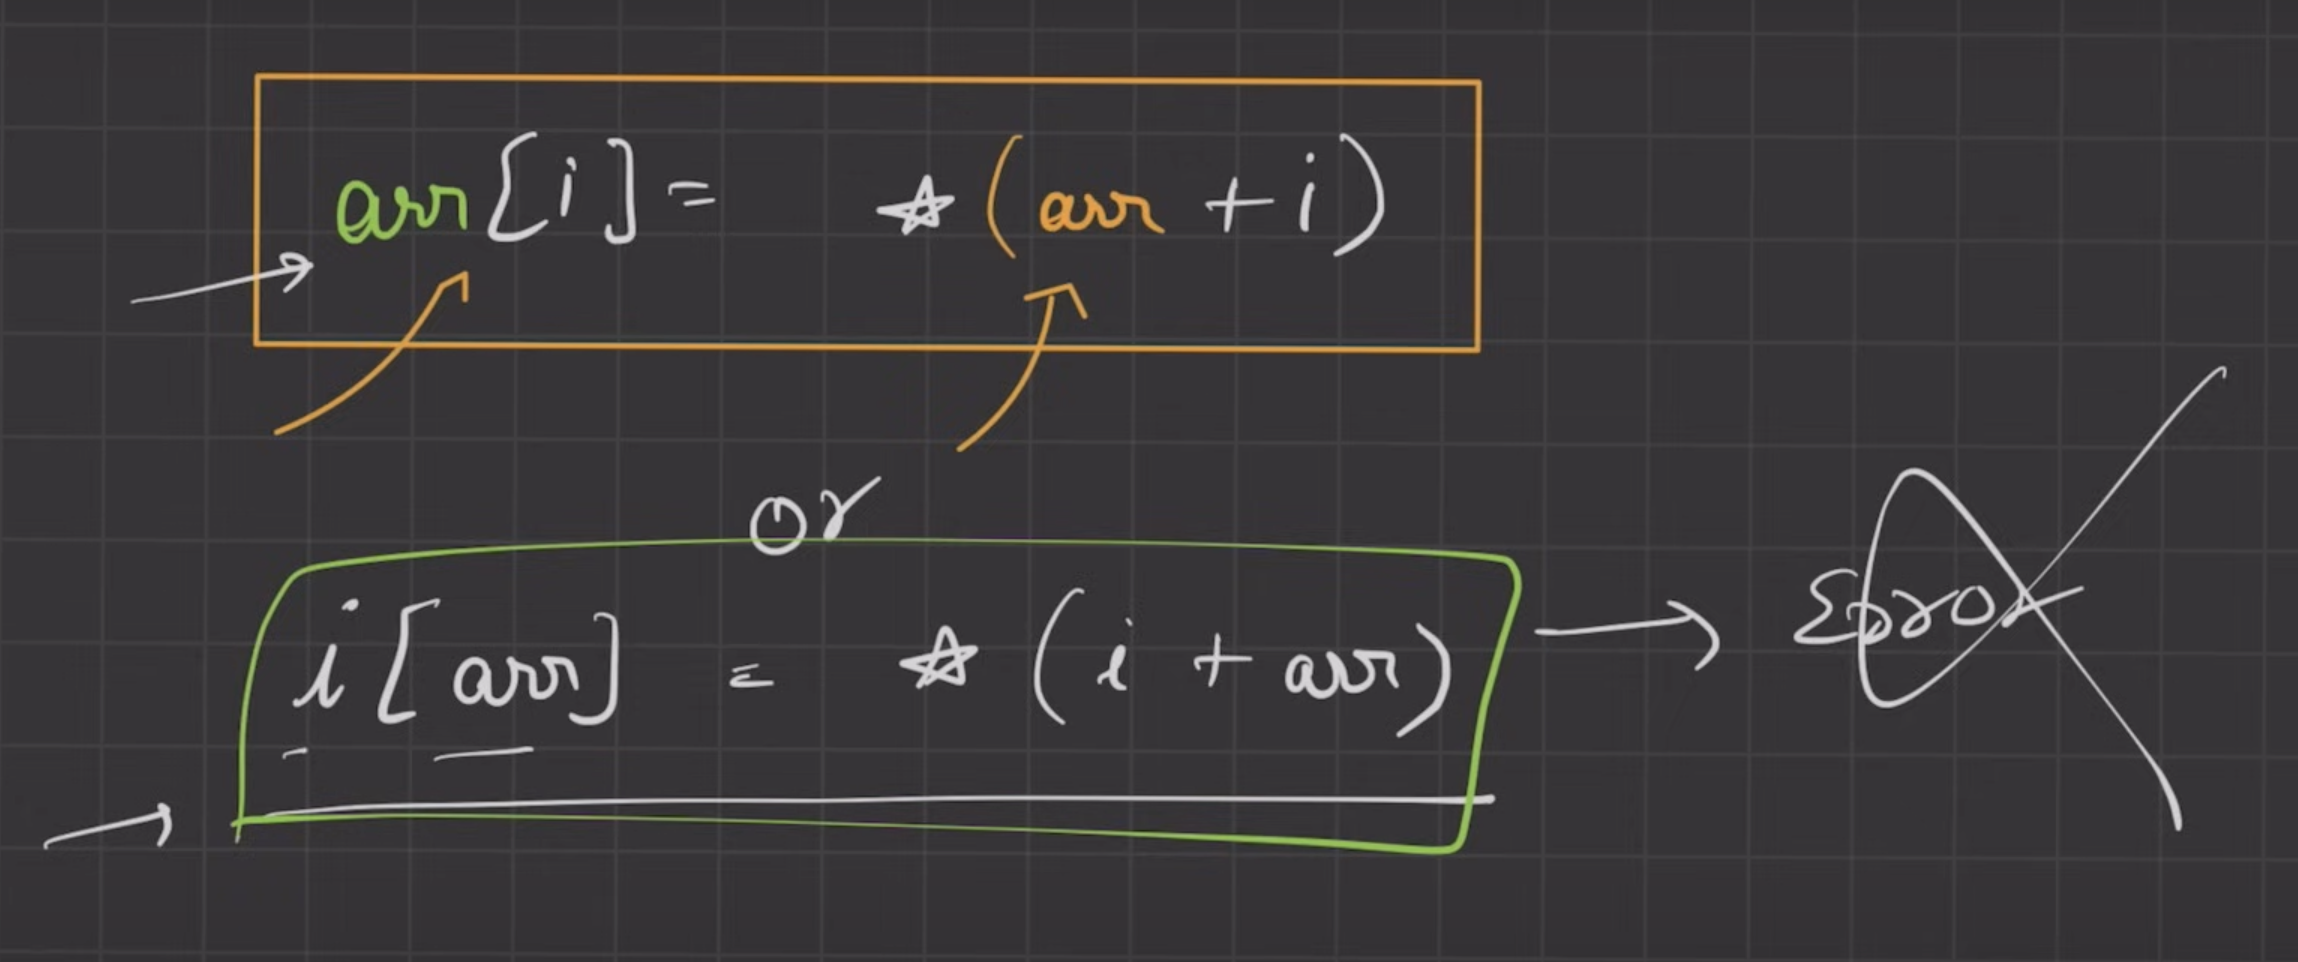 arr[i] = *(arr + i)
or
i[arr] = *(i + arr) → Error